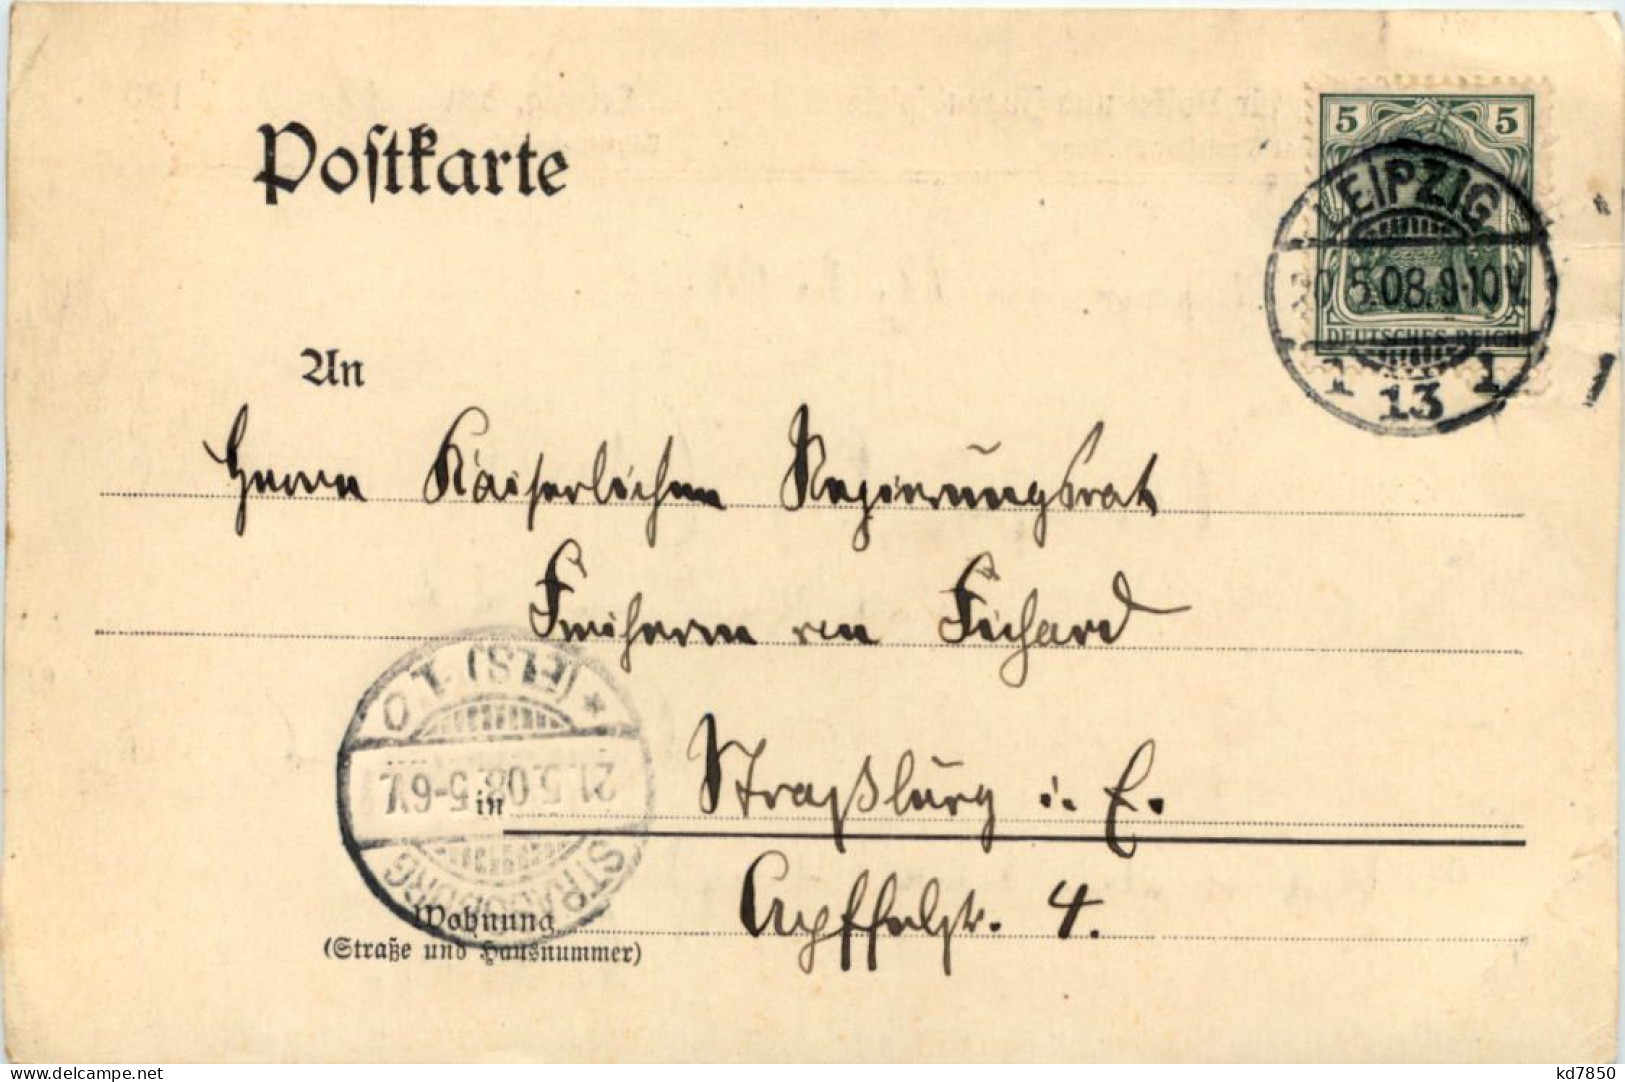 Postkarte
5 5
LEIPZIG
0.5.08.9-10V.
DEUTSCHES REICH
1 13 1
An
Herrn Kaiserlichen Regierungsrat
Freiherrn von Fichard
Straßburg i. E.
in
Apffelstr. 4.
Wohnung
(Straße und Hausnummer)
STRASSBURG
21.5.08.5-6V.
(ELS) 1.0
*
kd7850